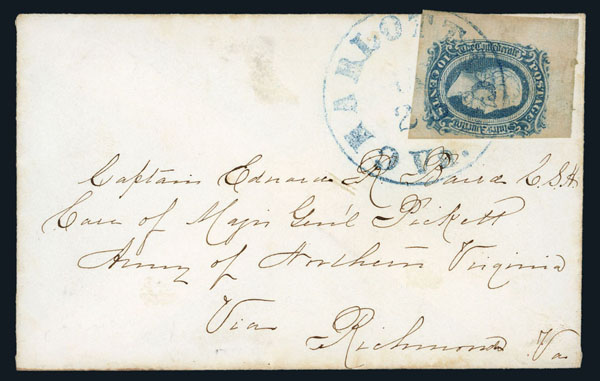 CHARLOTT
THE CONFEDERATE STATES OF AMERICA
POSTAGE
TEN CENTS
Captain Edward R. Baird C.S.A
Care of Majr Genl Pickett
Army of Northern Virginia
Via
Richmond Va